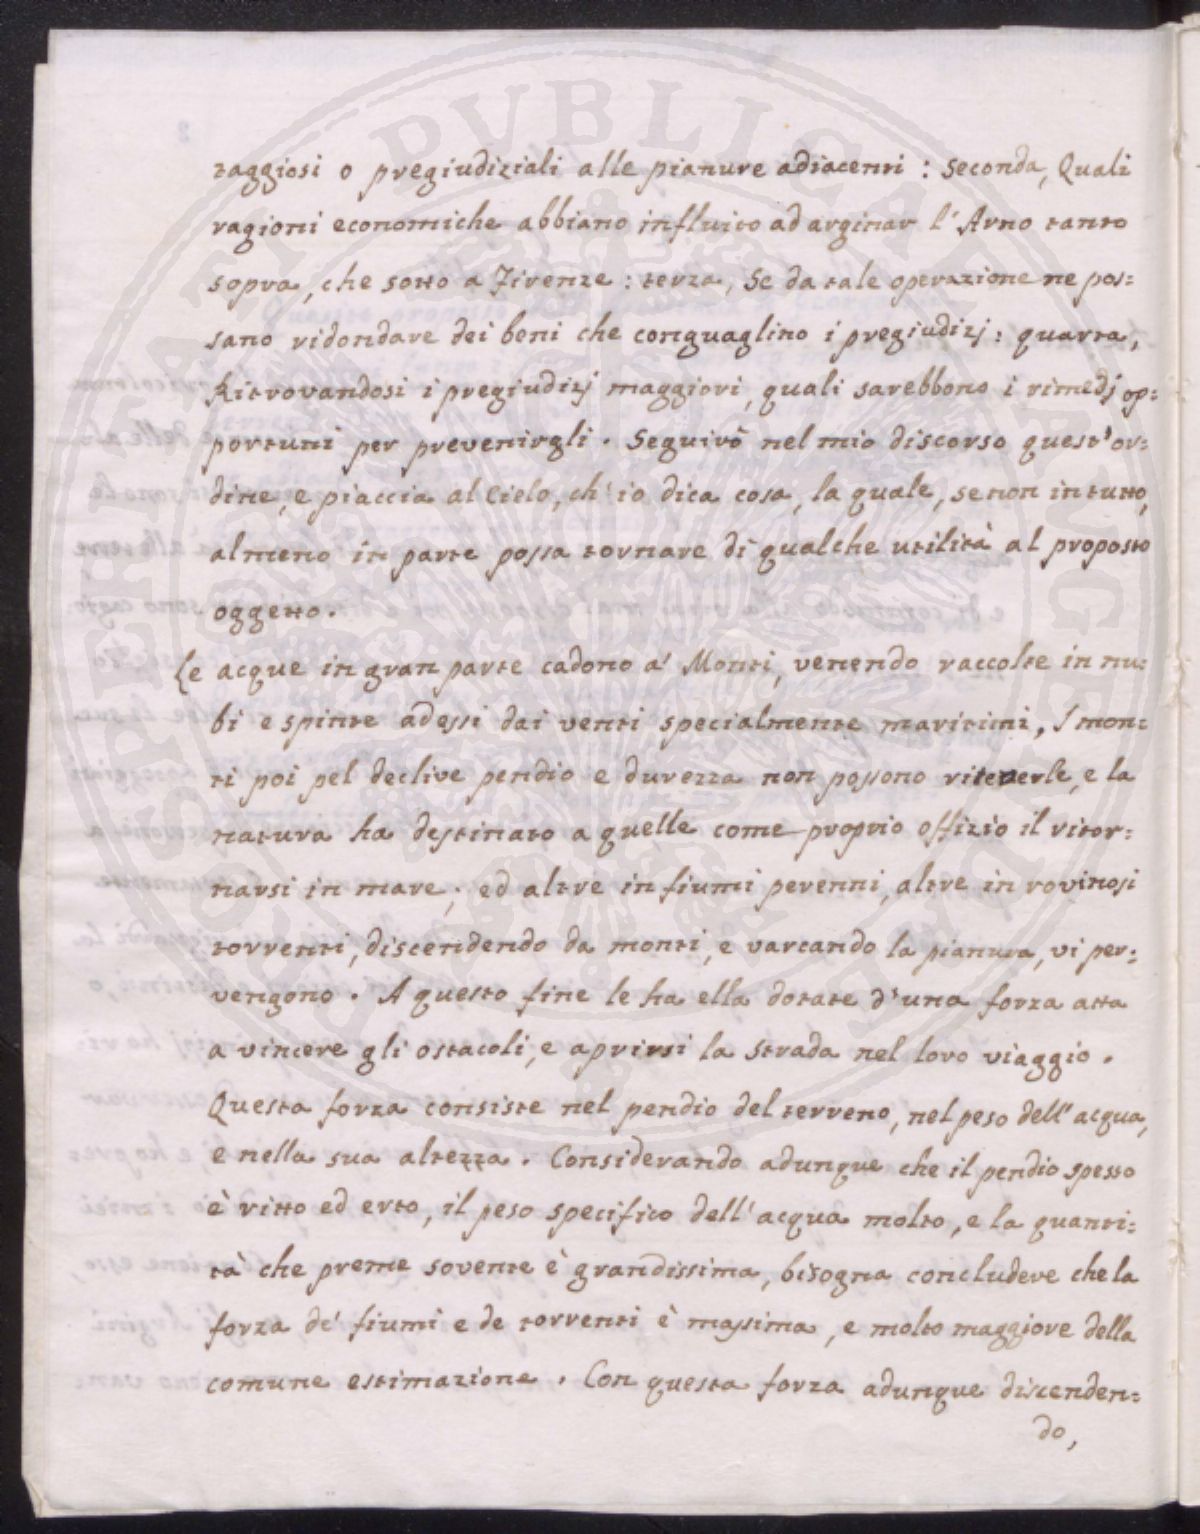 taggiosi o pregiudiziali alle pianure adiacenti : Seconda, Quali
ragioni economiche abbiano influito ad arginar l'Arno tanto
sopra, che sotto a Firenze : terza, Se da tale operazione ne pos=
sano ridondare dei beni che conguaglino i pregiudizj : quarta,
Ritrovandosi i pregiudizj maggiori, quali sarebbono i rimedj op=
portuni per prevenirgli. Seguirò nel mio discorso quest'or=
dine, e piaccia al Cielo, ch'io dica cosa, la quale, se non in tutto,
almeno in parte possa tornare di qualche utilità al proposto
oggetto.
Le acque in gran parte cadono a' Monti, venendo raccolte in nu=
bi e spinte adessi dai venti specialmente maritimi, I mon=
ti poi pel declive pendio e durezza non possono ritenerle, e la
natura ha destinato a quelle come proprio offizio il ritor=
narsi in mare; ed altre in fiumi perenni, altre in rovinosi
torrenti, discendendo da monti, e varcando la pianura, vi per=
vengono. A questo fine le ha ella dotate d'una forza atta
a vincere gli ostacoli, e aprirsi la strada nel loro viaggio.
Questa forza consiste nel pendio del terreno, nel peso dell'acqua,
e nella sua altezza. Considerando adunque che il pendio spesso
è ritto ed erto, il peso specifico dell'acqua molto, e la quanti=
tà che preme sovente è grandissima, bisogna concludere che la
forza de' fiumi e de torrenti è massima, e molto maggiore della
comune estimazione. Con questa forza adunque discenden=
do,